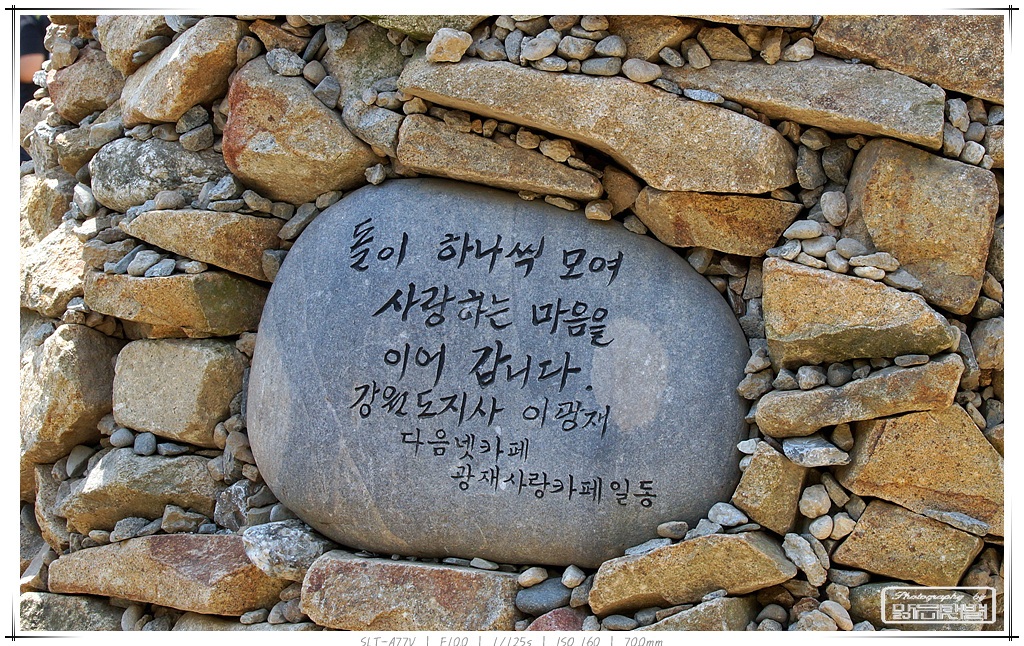 돌이 하나씩 모여
사랑하는 마음을
이어 갑니다.
강원도지사 이광재
다음넷카페
광재사랑카페일동
Photography by
맑은찬별
SLT-A77V | F10.0 | 1/125s | ISO 160 | 70.0mm